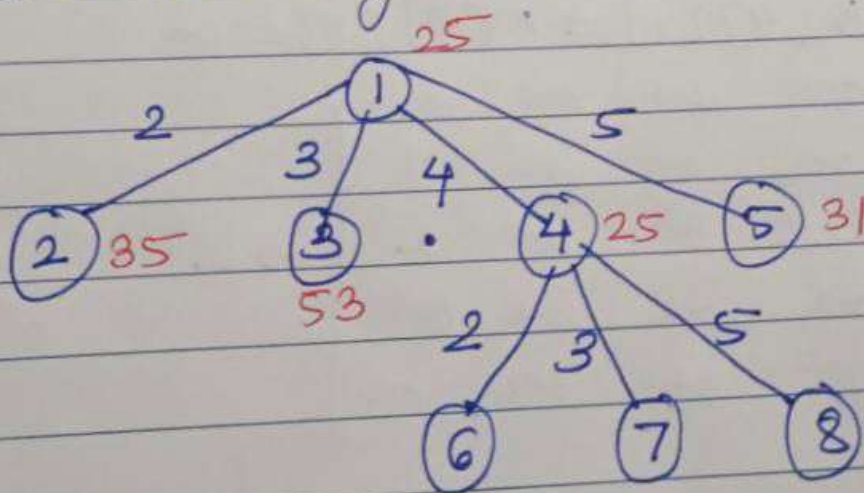 25
1
2 3 4 5
2 35 3 4 25 5 31
53
2 3 5
6 7 8